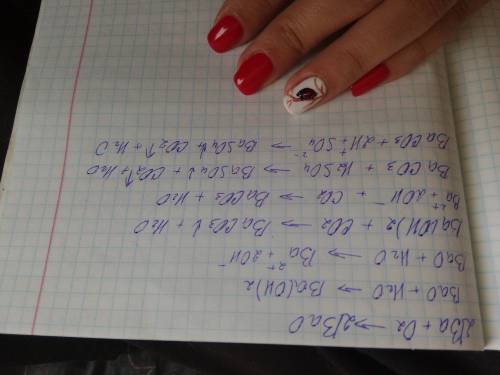 2Ba + O2 → 2BaO
BaO + H2O → Ba(OH)2
BaO + H2O → Ba²⁺ + 2OH⁻
Ba(OH)2 + CO2 → BaCO3↓ + H2O
Ba²⁺ + 2OH⁻ + CO2 → BaCO3 + H2O
BaCO3 + H2SO4 → BaSO4↓ + CO2↑ + H2O
BaCO3 + 2H⁺ + SO4²⁻ → BaSO4↓ + CO2↑ + H2O